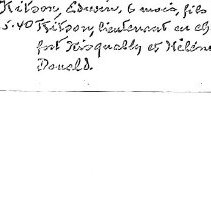 Kitson, Edwin, 6 mois, fils
5.40 Kitson, lieutenant en ch
fort Nisqually et Hélène
Donald.